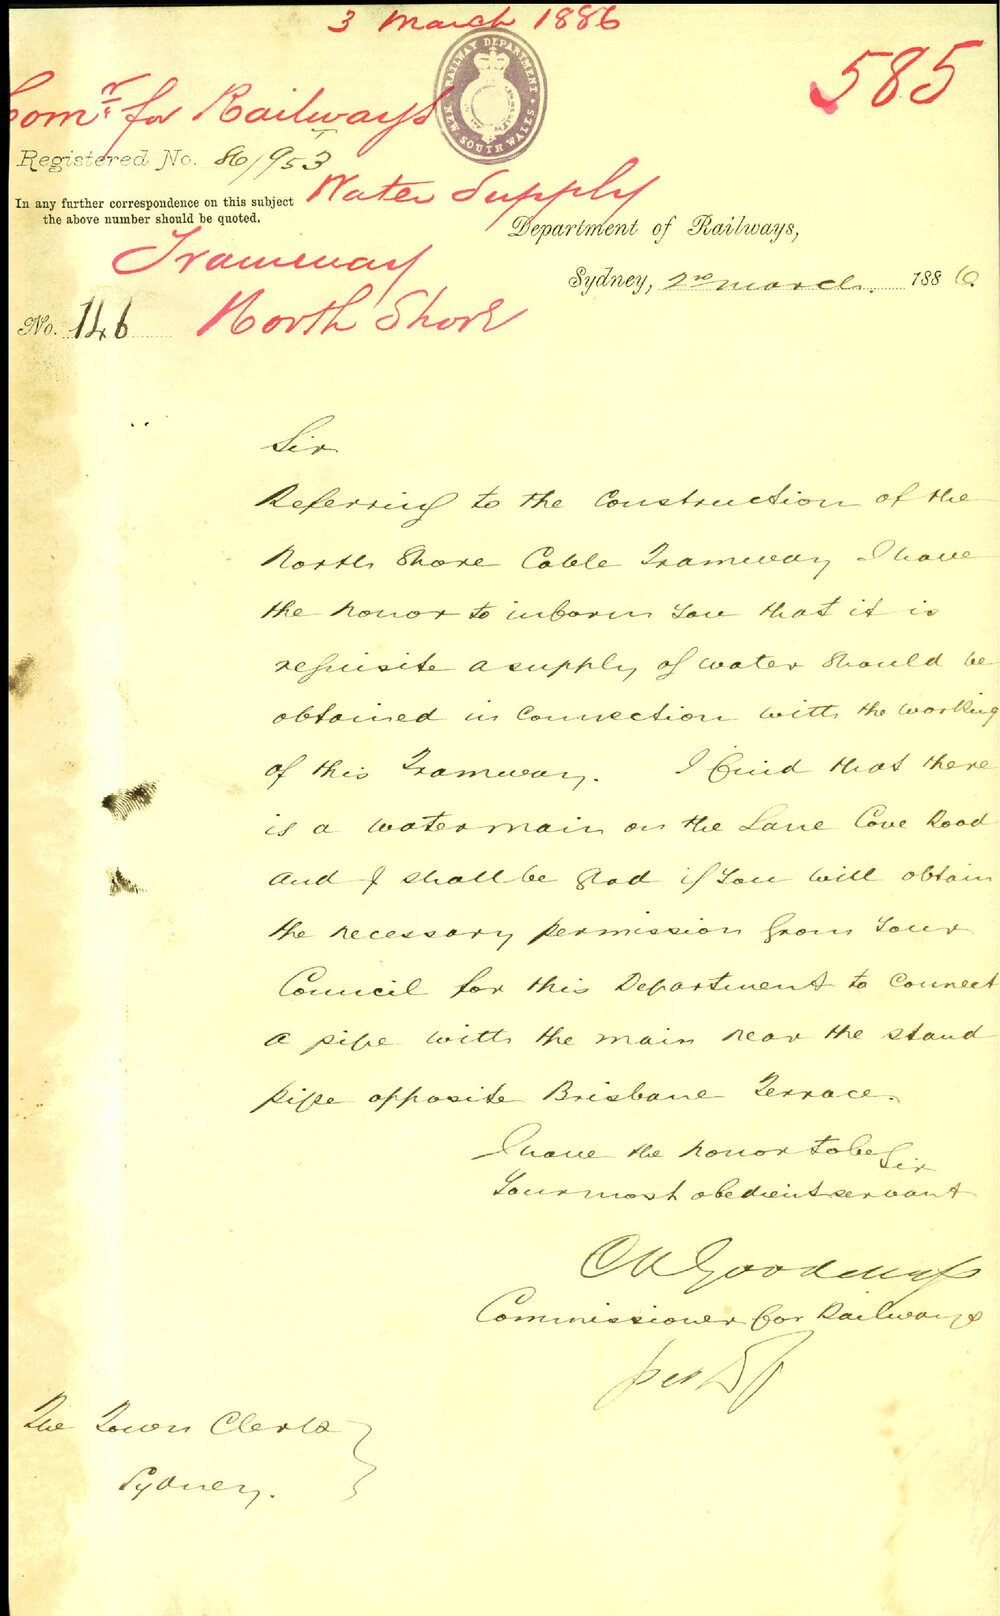 3 March 1886
585
Comr. for Railways
RAILWAY DEPARTMENT
NEW SOUTH WALES
Registered No. 86/953
T
In any further correspondence on this subject
the above number should be quoted.
Water Supply
Department of Railways,
Tramway
Sydney, 2nd March. 1886.
No. 146
North Shore
Sir
Referring to the Construction of the
North Shore Cable Tramway I have
the honor to inform you that it is
requisite a supply of water should be
obtained in connection with the working
of this Tramway. I find that there
is a watermain on the Lane Cove Road
and I shall be glad if you will obtain
the necessary permission from your
Council for this Department to connect
a pipe with the main near the stand
pipe opposite Brisbane Terrace.
I have the honor to be Sir
Your most obedient servant
Ch A Goodchap
Commissioner for Railways
per
The Town Clerk
Sydney.